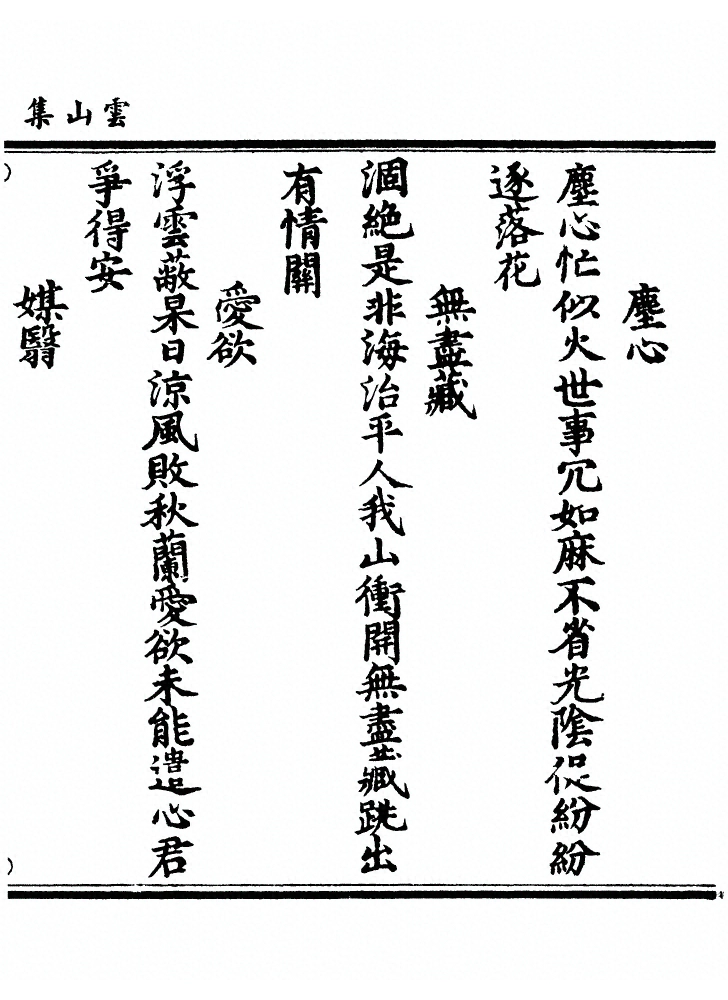 雲山集
塵心
塵心忙似火世事冗如麻不省光陰促紛紛
逐落花
無盡藏
涸絶是非海治平人我山衝開無盡藏跳出
有情關
愛欲
浮雲蔽杲日涼風敗秋蘭愛欲未能遣心君
爭得安
媒翳